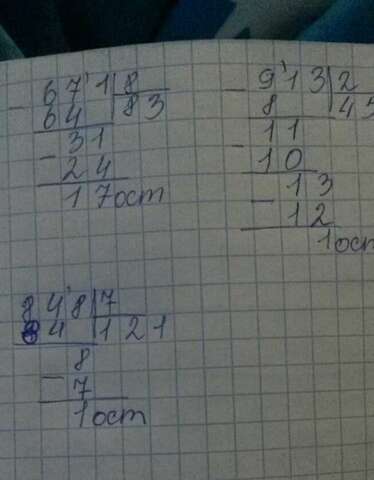 671 8
64 83
31
24
17 ост
913 2
8 45
11
10
13
12
1 ост
848 7
84 121
8
7
1 ост